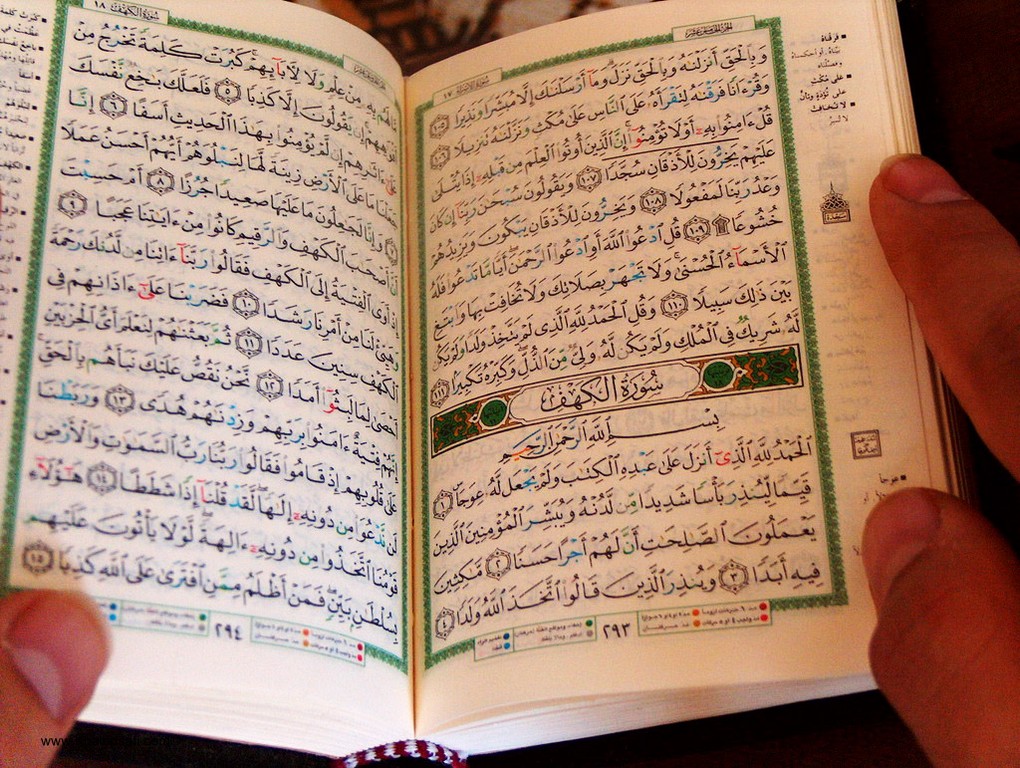 الجزء الخامس عشر
سورة الإسراء ١٧
وَبِٱلْحَقِّ أَنزَلْنَٰهُ وَبِٱلْحَقِّ نَزَلَ وَمَآ أَرْسَلْنَٰكَ إِلَّا مُبَشِّرًا وَنَذِيرًا ١٠٥
وَقُرْءَانًا فَرَقْنَٰهُ لِتَقْرَأَهُۥ عَلَى ٱلنَّاسِ عَلَىٰ مُكْثٍ وَنَزَّلْنَٰهُ تَنزِيلًا ١٠٦
قُلْ ءَامِنُوا۟ بِهِۦٓ أَوْ لَا تُؤْمِنُوٓا۟ إِنَّ ٱلَّذِينَ أُوتُوا۟ ٱلْعِلْمَ مِن قَبْلِهِۦٓ إِذَا يُتْلَىٰ
عَلَيْهِمْ يَخِرُّونَ لِلْأَذْقَانِ سُجَّدًا ١٠٧ وَيَقُولُونَ سُبْحَٰنَ رَبِّنَآ إِن كَانَ
وَعْدُ رَبِّنَا لَمَفْعُولًا ١٠٨ وَيَخِرُّونَ لِلْأَذْقَانِ يَبْكُونَ وَيَزِيدُهُمْ
خُشُوعًا ۩ ١٠٩ قُلِ ٱدْعُوا۟ ٱللَّهَ أَوِ ٱدْعُوا۟ ٱلرَّحْمَٰنَ أَيًّا مَّا تَدْعُوا۟ فَلَهُ
ٱلْأَسْمَآءُ ٱلْحُسْنَىٰ وَلَا تَجْهَرْ بِصَلَاتِكَ وَلَا تُخَافِتْ بِهَا وَٱبْتَغِ
بَيْنَ ذَٰلِكَ سَبِيلًا ١١٠ وَقُلِ ٱلْحَمْدُ لِلَّهِ ٱلَّذِى لَمْ يَتَّخِذْ وَلَدًا وَلَمْ يَكُن
لَّهُۥ شَرِيكٌ فِى ٱلْمُلْكِ وَلَمْ يَكُن لَّهُۥ وَلِىٌّ مِّنَ ٱلذُّلِّ وَكَبِّرْهُ تَكْبِيرًا ١١١
سُورَةُ الكَهْفِ
بِسْمِ ٱللَّهِ ٱلرَّحْمَٰنِ ٱلرَّحِيمِ
ٱلْحَمْدُ لِلَّهِ ٱلَّذِىٓ أَنزَلَ عَلَىٰ عَبْدِهِ ٱلْكِتَٰبَ وَلَمْ يَجْعَل لَّهُۥ عِوَجَا ١
قَيِّمًا لِّيُنذِرَ بَأْسًا شَدِيدًا مِّن لَّدُنْهُ وَيُبَشِّرَ ٱلْمُؤْمِنِينَ ٱلَّذِينَ
يَعْمَلُونَ ٱلصَّٰلِحَٰتِ أَنَّ لَهُمْ أَجْرًا حَسَنًا ٢ مَّٰكِثِينَ
فِيهِ أَبَدًا ٣ وَيُنذِرَ ٱلَّذِينَ قَالُوا۟ ٱتَّخَذَ ٱللَّهُ وَلَدًا ٤
٢٩٣
سورة الكهف ١٨
مَّا لَهُم بِهِۦ مِنْ عِلْمٍ وَلَا لِـَٔابَآئِهِمْ كَبُرَتْ كَلِمَةً تَخْرُجُ مِنْ
أَفْوَٰهِهِمْ إِن يَقُولُونَ إِلَّا كَذِبًا ٥ فَلَعَلَّكَ بَٰخِعٌ نَّفْسَكَ
عَلَىٰٓ ءَاثَٰرِهِمْ إِن لَّمْ يُؤْمِنُوا۟ بِهَٰذَا ٱلْحَدِيثِ أَسَفًا ٦ إِنَّا
جَعَلْنَا مَا عَلَى ٱلْأَرْضِ زِينَةً لَّهَا لِنَبْلُوَهُمْ أَيُّهُمْ أَحْسَنُ عَمَلًا
٧ وَإِنَّا لَجَٰعِلُونَ مَا عَلَيْهَا صَعِيدًا جُرُزًا ٨ أَمْ حَسِبْتَ
أَنَّ أَصْحَٰبَ ٱلْكَهْفِ وَٱلرَّقِيمِ كَانُوا۟ مِنْ ءَايَٰتِنَا عَجَبًا ٩
إِذْ أَوَى ٱلْفِتْيَةُ إِلَى ٱلْكَهْفِ فَقَالُوا۟ رَبَّنَآ ءَاتِنَا مِن لَّدُنكَ رَحْمَةً
وَهَيِّئْ لَنَا مِنْ أَمْرِنَا رَشَدًا ١٠ فَضَرَبْنَا عَلَىٰٓ ءَاذَانِهِمْ فِى
ٱلْكَهْفِ سِنِينَ عَدَدًا ١١ ثُمَّ بَعَثْنَٰهُمْ لِنَعْلَمَ أَىُّ ٱلْحِزْبَيْنِ
أَحْصَىٰ لِمَا لَبِثُوٓا۟ أَمَدًا ١٢ نَّحْنُ نَقُصُّ عَلَيْكَ نَبَأَهُم بِٱلْحَقِّ
إِنَّهُمْ فِتْيَةٌ ءَامَنُوا۟ بِرَبِّهِمْ وَزِدْنَٰهُمْ هُدًى ١٣ وَرَبَطْنَا
عَلَىٰ قُلُوبِهِمْ إِذْ قَامُوا۟ فَقَالُوا۟ رَبُّنَا رَبُّ ٱلسَّمَٰوَٰتِ وَٱلْأَرْضِ
لَن نَّدْعُوَا۟ مِن دُونِهِۦٓ إِلَٰهًا لَّقَدْ قُلْنَآ إِذًا شَطَطًا ١٤ هَٰٓؤُلَآءِ
قَوْمُنَا ٱتَّخَذُوا۟ مِن دُونِهِۦٓ ءَالِهَةً لَّوْلَا يَأْتُونَ عَلَيْهِم
بِسُلْطَٰنٍۭ بَيِّنٍ فَمَنْ أَظْلَمُ مِمَّنِ ٱفْتَرَىٰ عَلَى ٱللَّهِ كَذِبًا ١٥
٢٩٤